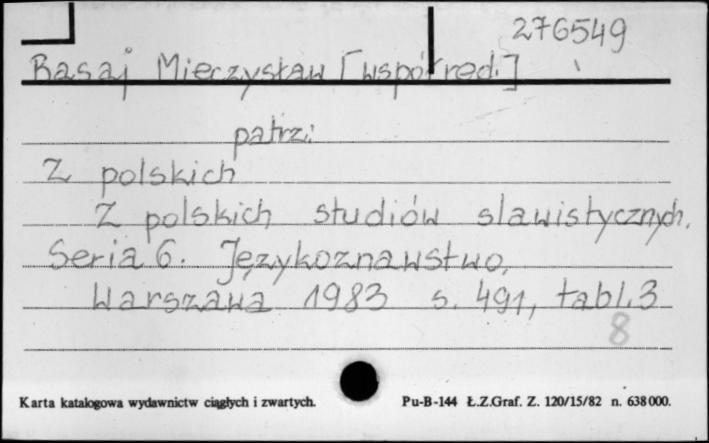 276549
Basaj Mieczysław [współred.]
patrz:
Z polskich
Z polskich studiów slawistycznych.
Seria 6. Językoznawstwo,
Warszawa 1983 s. 491, tabl. 3
8
Karta katalogowa wydawnictw ciągłych i zwartych. Pu-B-144 Ł.Z.Graf. Z. 120/15/82 n. 638 000.